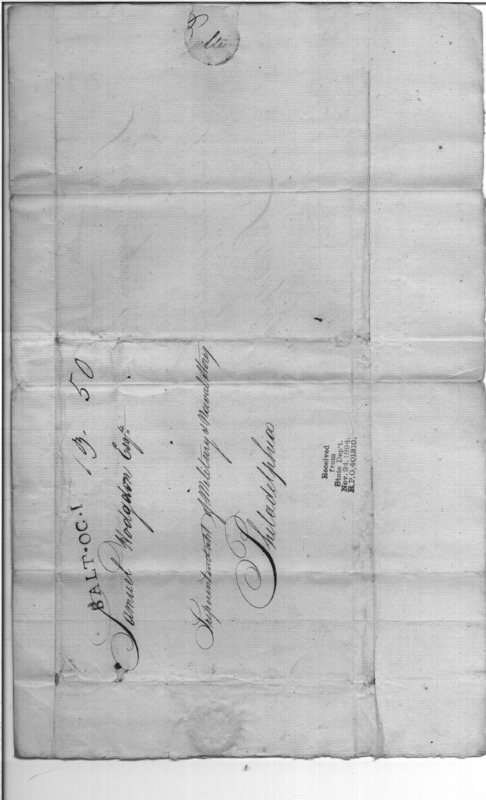 BALT·OC·1 13 50
Samuel Hodgdon Esqr.
Superintendent of Military & Naval
Philadelphia
Received
from
State Dep't.
Nov. 24, 1894,
R.P.O. 401810.